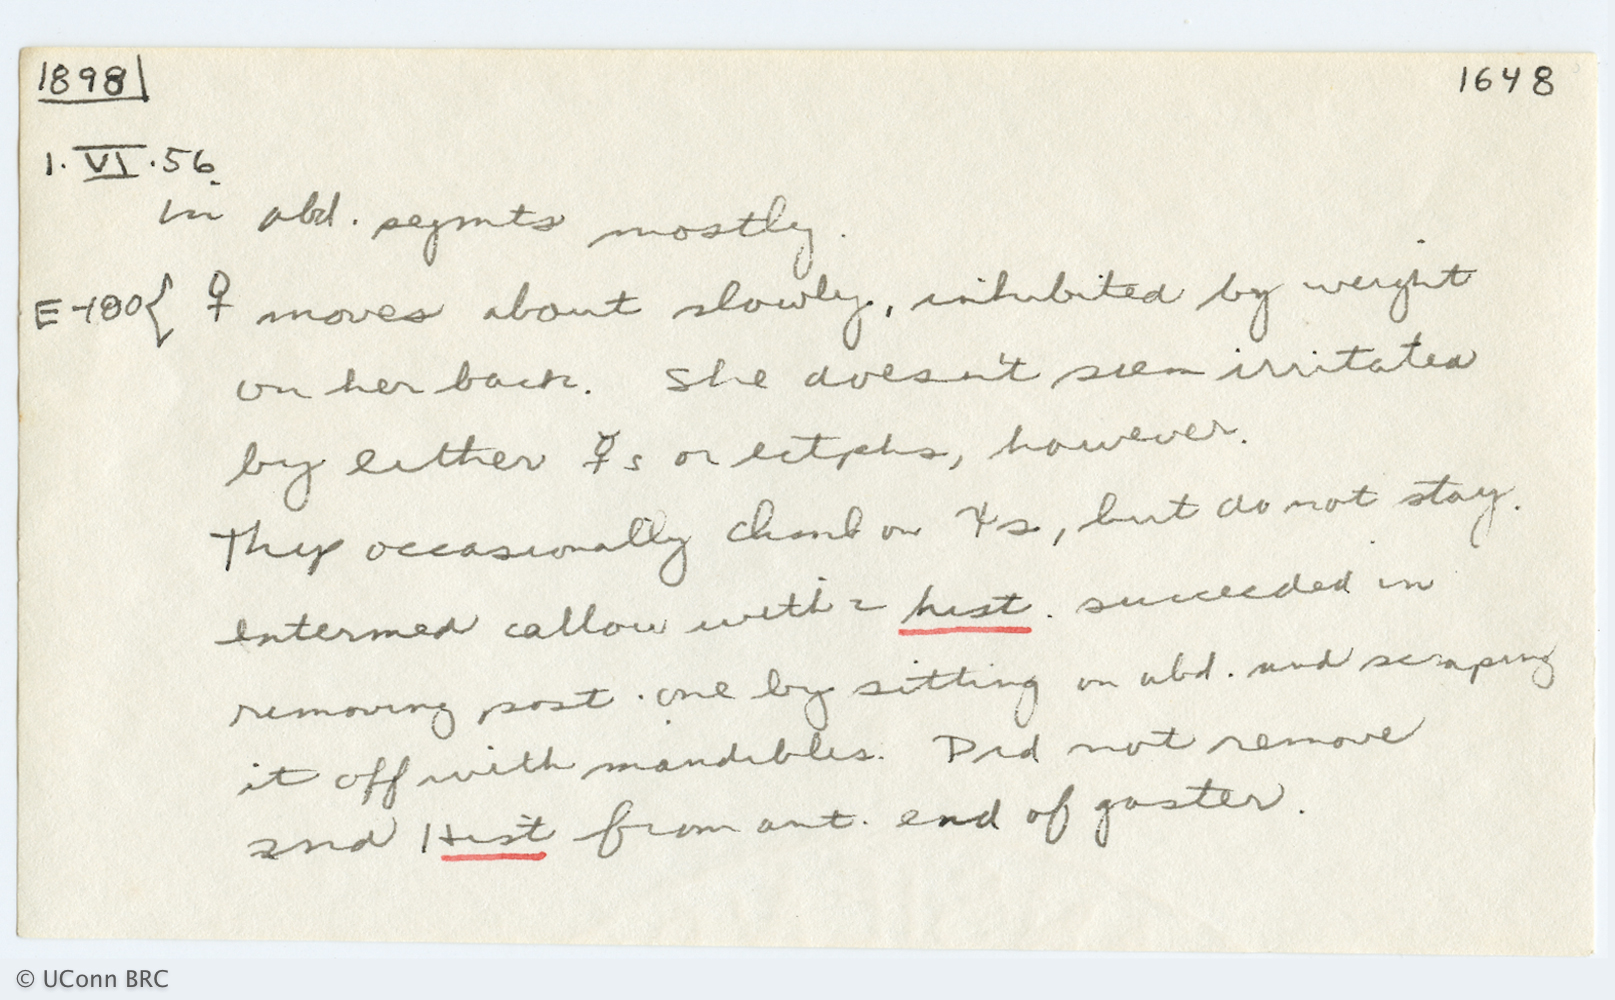 1898 1648
1. VI .56
in abd. segmts mostly.
E-180{ ♀ moves about slowly, inhibited by weight
on her back. She doesn't seem irritated
by either ☿s or ectphs, however.
They occasionally climb on ☿s, but do not stay.
Intermed callow with 2 hist. succeeded in
removing post. one by sitting on abd. and scraping
it off with mandibles. Did not remove
2nd Hist from ant. end of gaster.
© UConn BRC